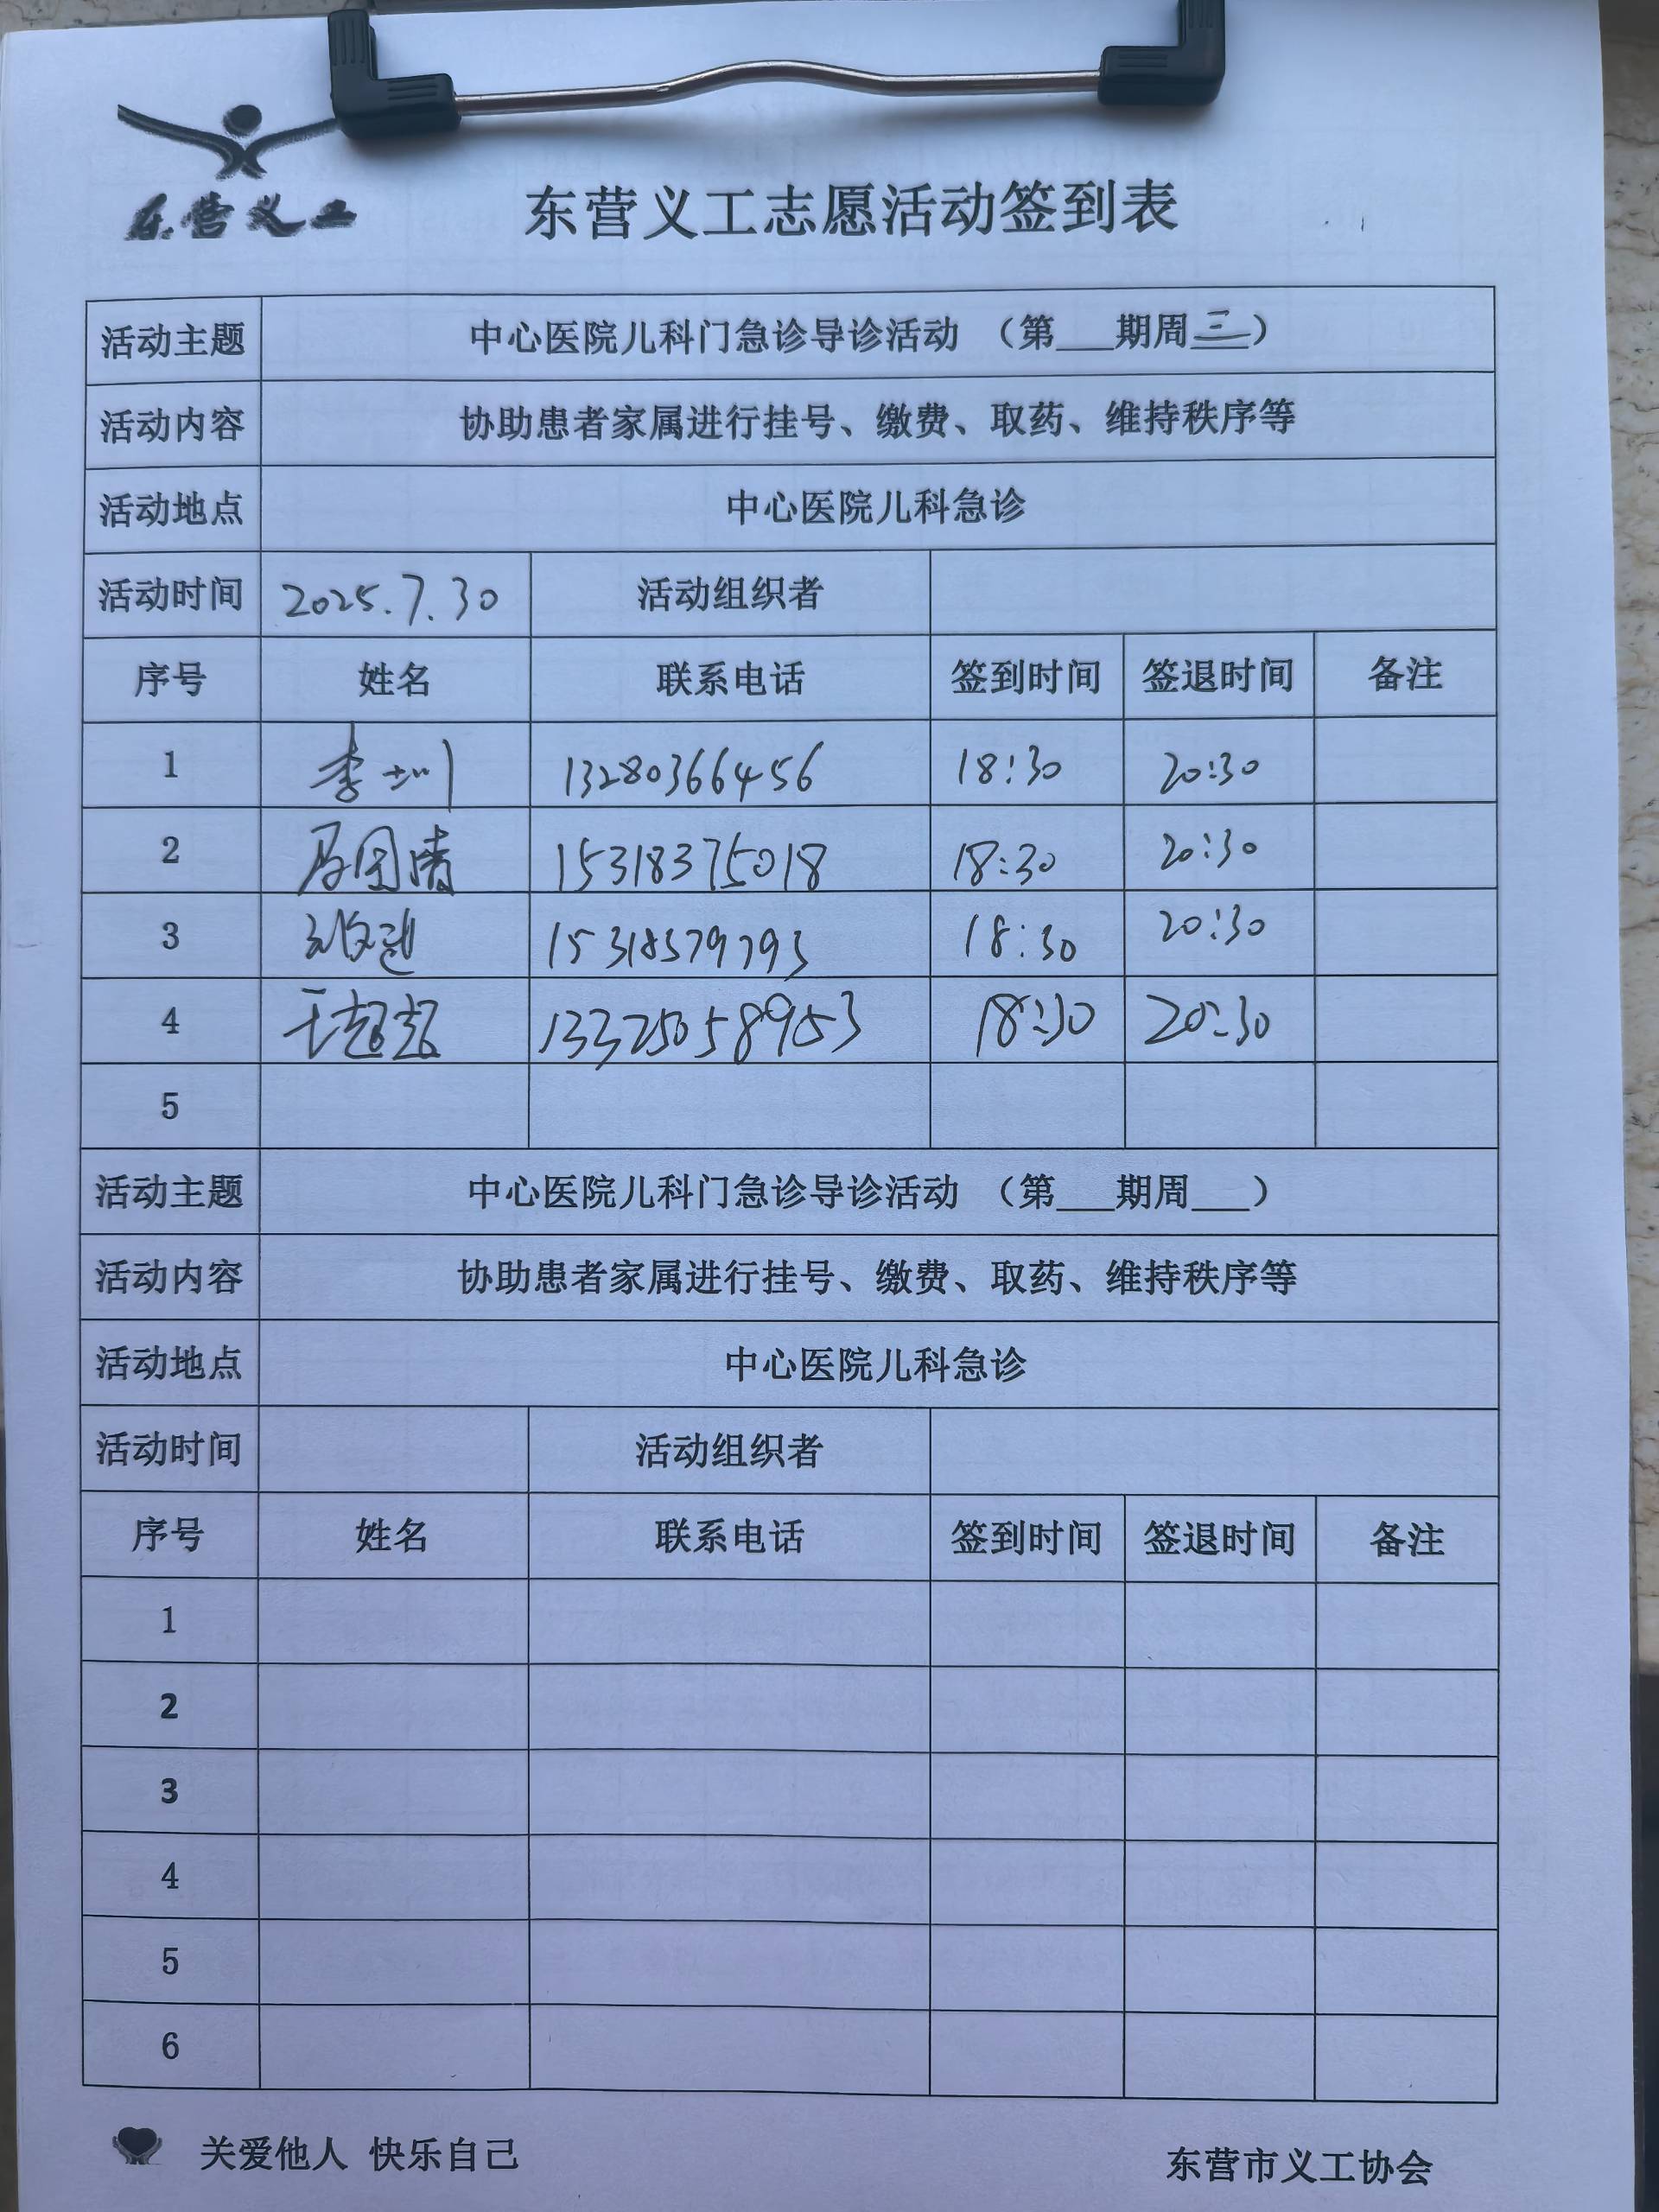 东营义工
东营义工志愿活动签到表
活动主题 中心医院儿科门急诊导诊活动 （第___期周三）
活动内容 协助患者家属进行挂号、缴费、取药、维持秩序等
活动地点 中心医院儿科急诊
活动时间 2025.7.30 活动组织者
序号 姓名 联系电话 签到时间 签退时间 备注
1 李 13280366456 18:30 20:30
2 15318375018 18:30 20:30
3 18:30 20:30
4 于超超 13325058953 18:30 20:30
5
活动主题 中心医院儿科门急诊导诊活动 （第___期周___）
活动内容 协助患者家属进行挂号、缴费、取药、维持秩序等
活动地点 中心医院儿科急诊
活动时间 活动组织者
序号 姓名 联系电话 签到时间 签退时间 备注
1
2
3
4
5
6
关爱他人 快乐自己
东营市义工协会